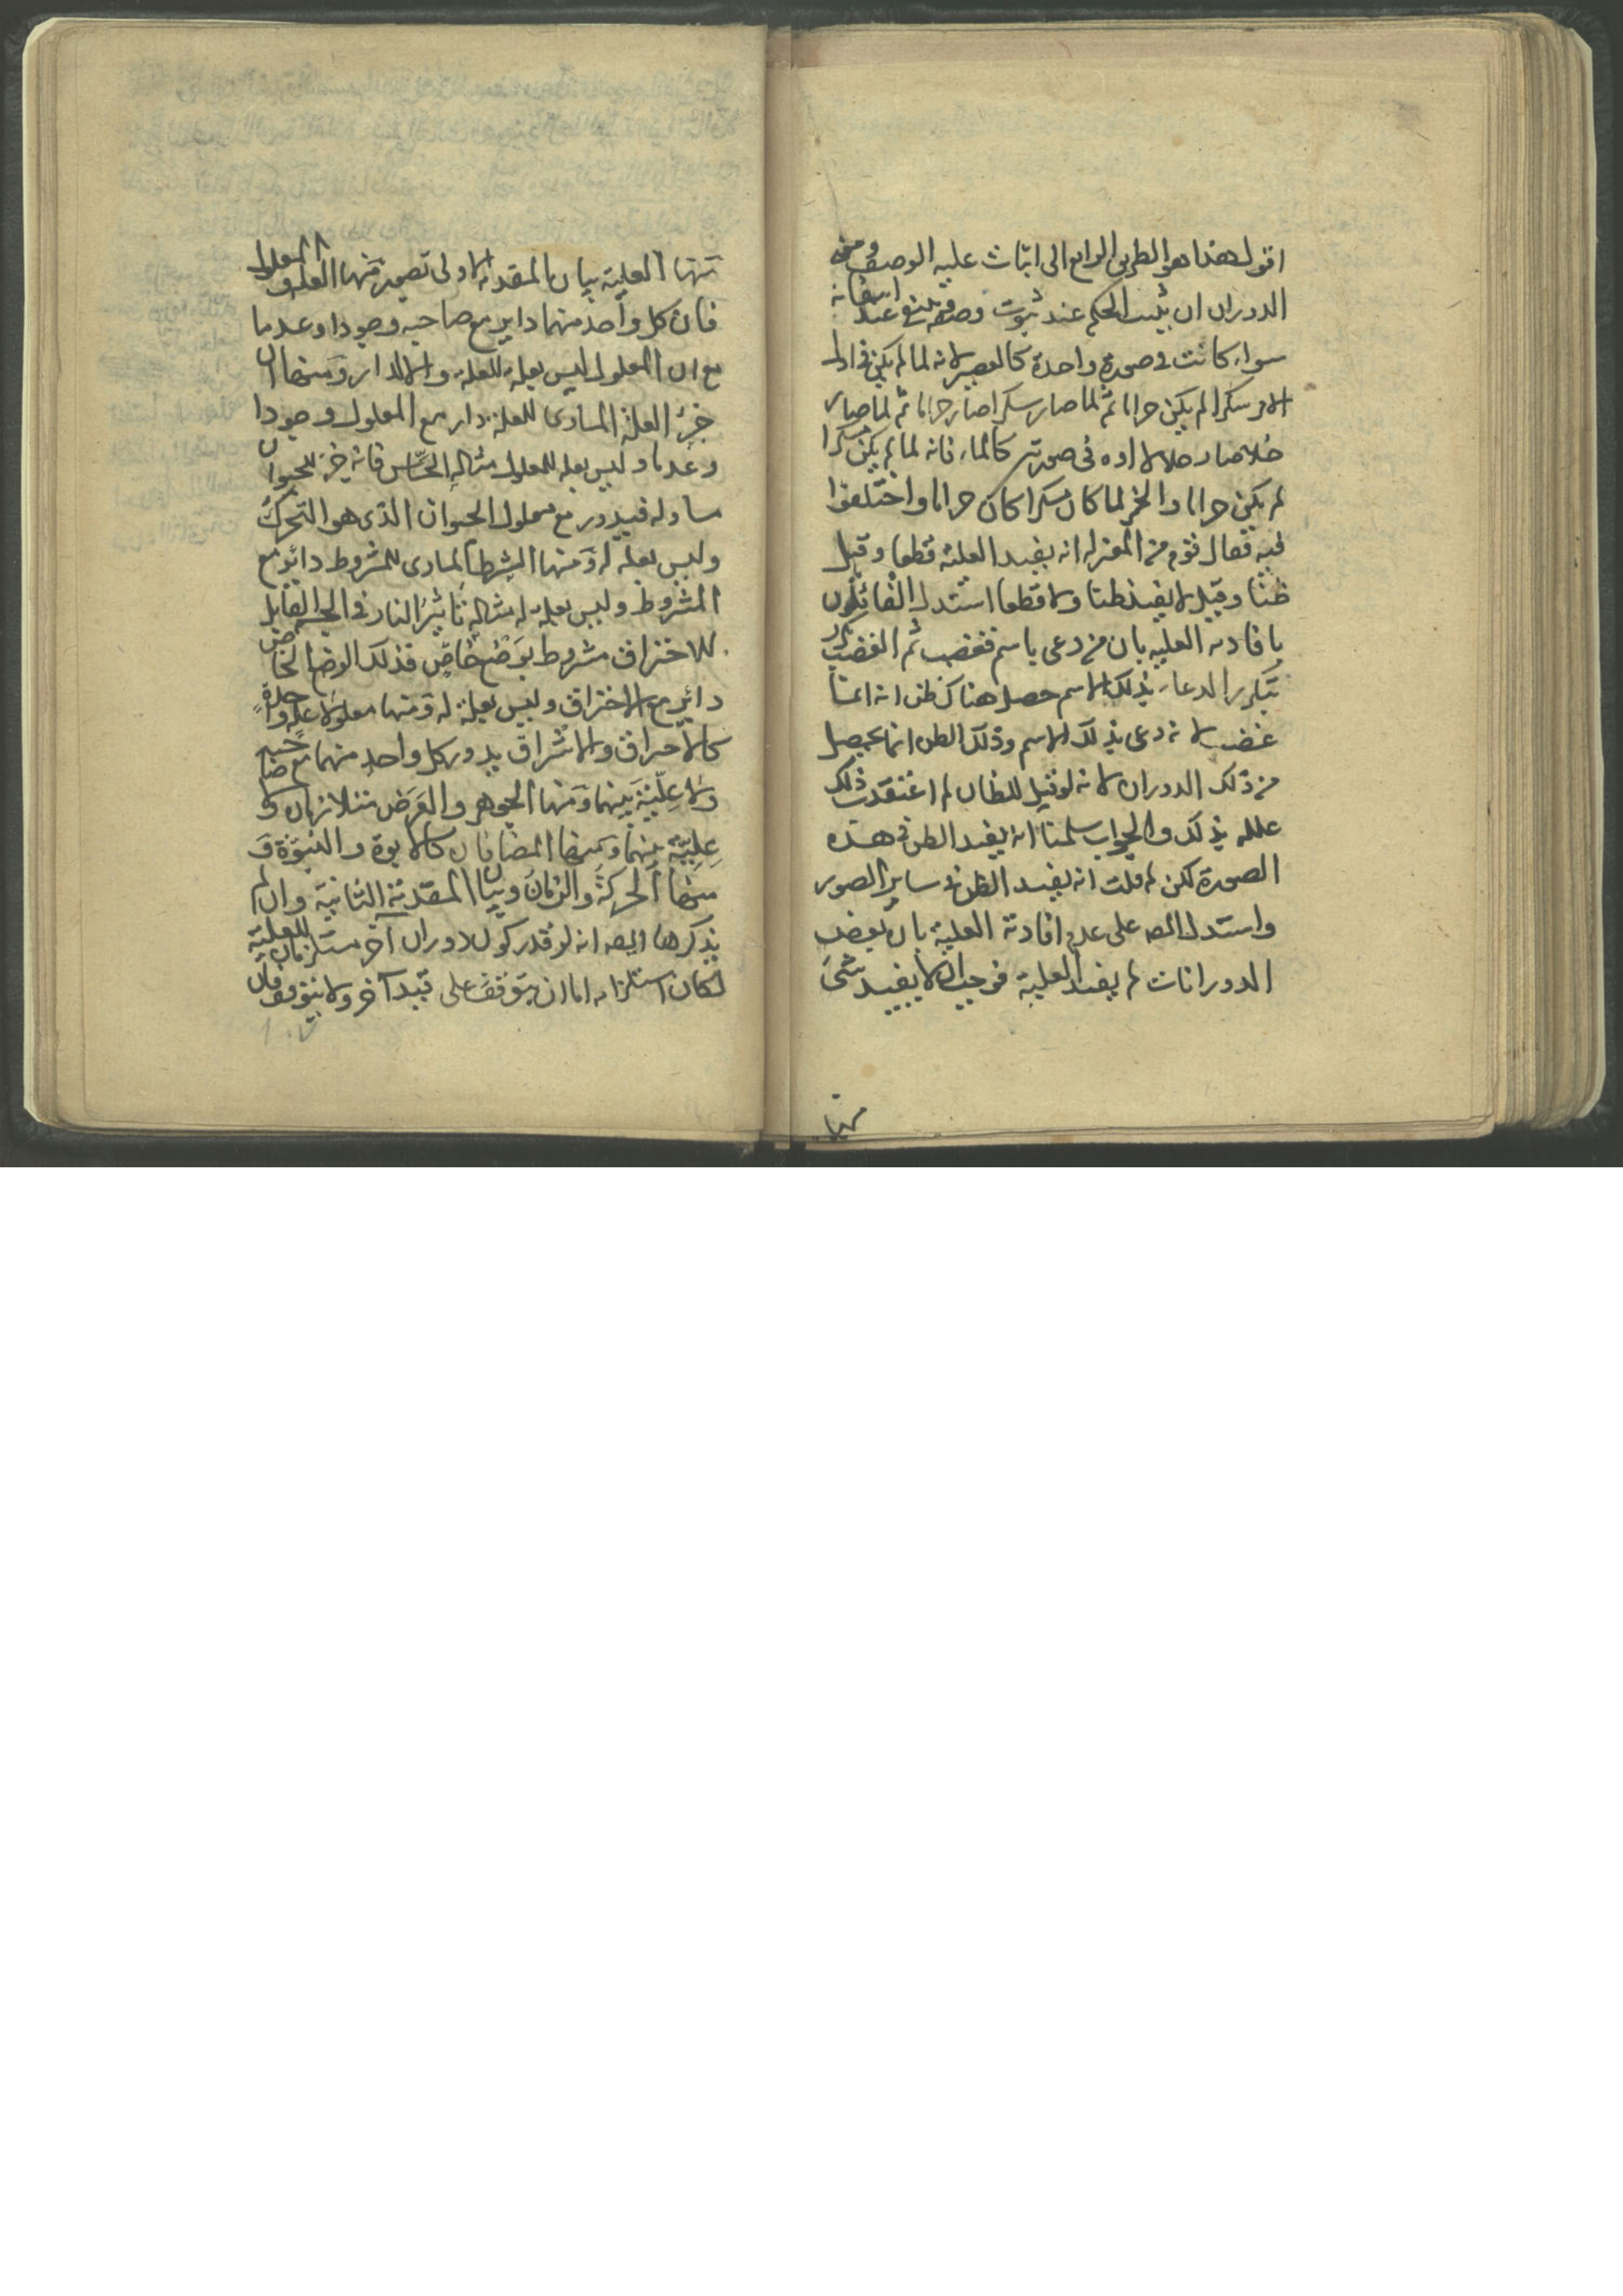 اقول هذا هو الطريق الرابع الى اثبات علية الوصف ومعنى
الدوران ان يثبت الحكم عند ثبوت وصف وينتفي عند انتفائه
سواء كانت في صورة واحدة كالعصير لانه لما لم يكن في اول
الامر مسكرا لم يكن حراما ثم لما صار مسكرا صار حراما ثم لما صار
خلا صار حلالا او في صورتين كالماء فانه لما لم يكن مسكرا
لم يكن حراما والخمر لما كان مسكرا كان حراما واختلفوا
فيه فقال قوم من المعتزلة انه يفيد العلية قطعا وقيل
ظنا وقيل لا يفيد ظنا ولا قطعا استدل القائلون
بافادته العلية بان من دعى باسم فغضب ثم تكرر الغضب
بتكرر الدعاء بذلك الاسم حصل هناك ظن انه انما
غضب لانه دعى بذلك الاسم وذلك الظن انما يحصل
من ذلك الدوران لانه لو قيل للظان لم اعتقدت ذلك
علله بذلك والجواب سلمنا انه يفيد الظن في هذه
الصورة لكن لم قلت انه يفيد الظن في ساير الصور
واستدل المصـ على عدم افادته العلية بان بعض
الدورانات لم يفيد العلية فوجب ان لا يفيد شئ
منها
منها العلية بيان المقدمة الاولى تصور منها العلة والمعلول
فان كل واحد منهما داير مع صاحبه وجودا وعدما
مع ان المعلول ليس بعلة للعلة والا لدار ومنها ان
جزء العلة المساوى للعلة دار مع المعلول وجودا
وعدما وليس بعلة للمعلول مثاله الحساس فانه جزء للحيوان
مساو له فيدور مع معلول الحيوان الذى هو التحرك
وليس بعلة له ومنها الشرط المساوى للمشروط دائر مع
المشروط وليس بعلة له مثاله تاثير النار في الجسم القابل
للاحتراق مشروط بوضع خاص فذلك الوضع الخاص
دائر مع الاحتراق وليس بعلة له ومنها معلولا علة واحدة
كالاحراق والاشراق يدور كل واحد منهما مع صاحبه
ولا علية بينهما ومنها الجوهر والعرض متلازمان ولا
علية بينهما ومنها المضافان كالابوة والبنوة و
منها الحركة والزمان وبيان المقدمة الثانية وان لم
يذكرها المصـ انه لو قدر كون دوران آخر مستلزما للعلية
لكان استلزامه اما ان يتوقف على قيد آخر ولا يتوقف فان